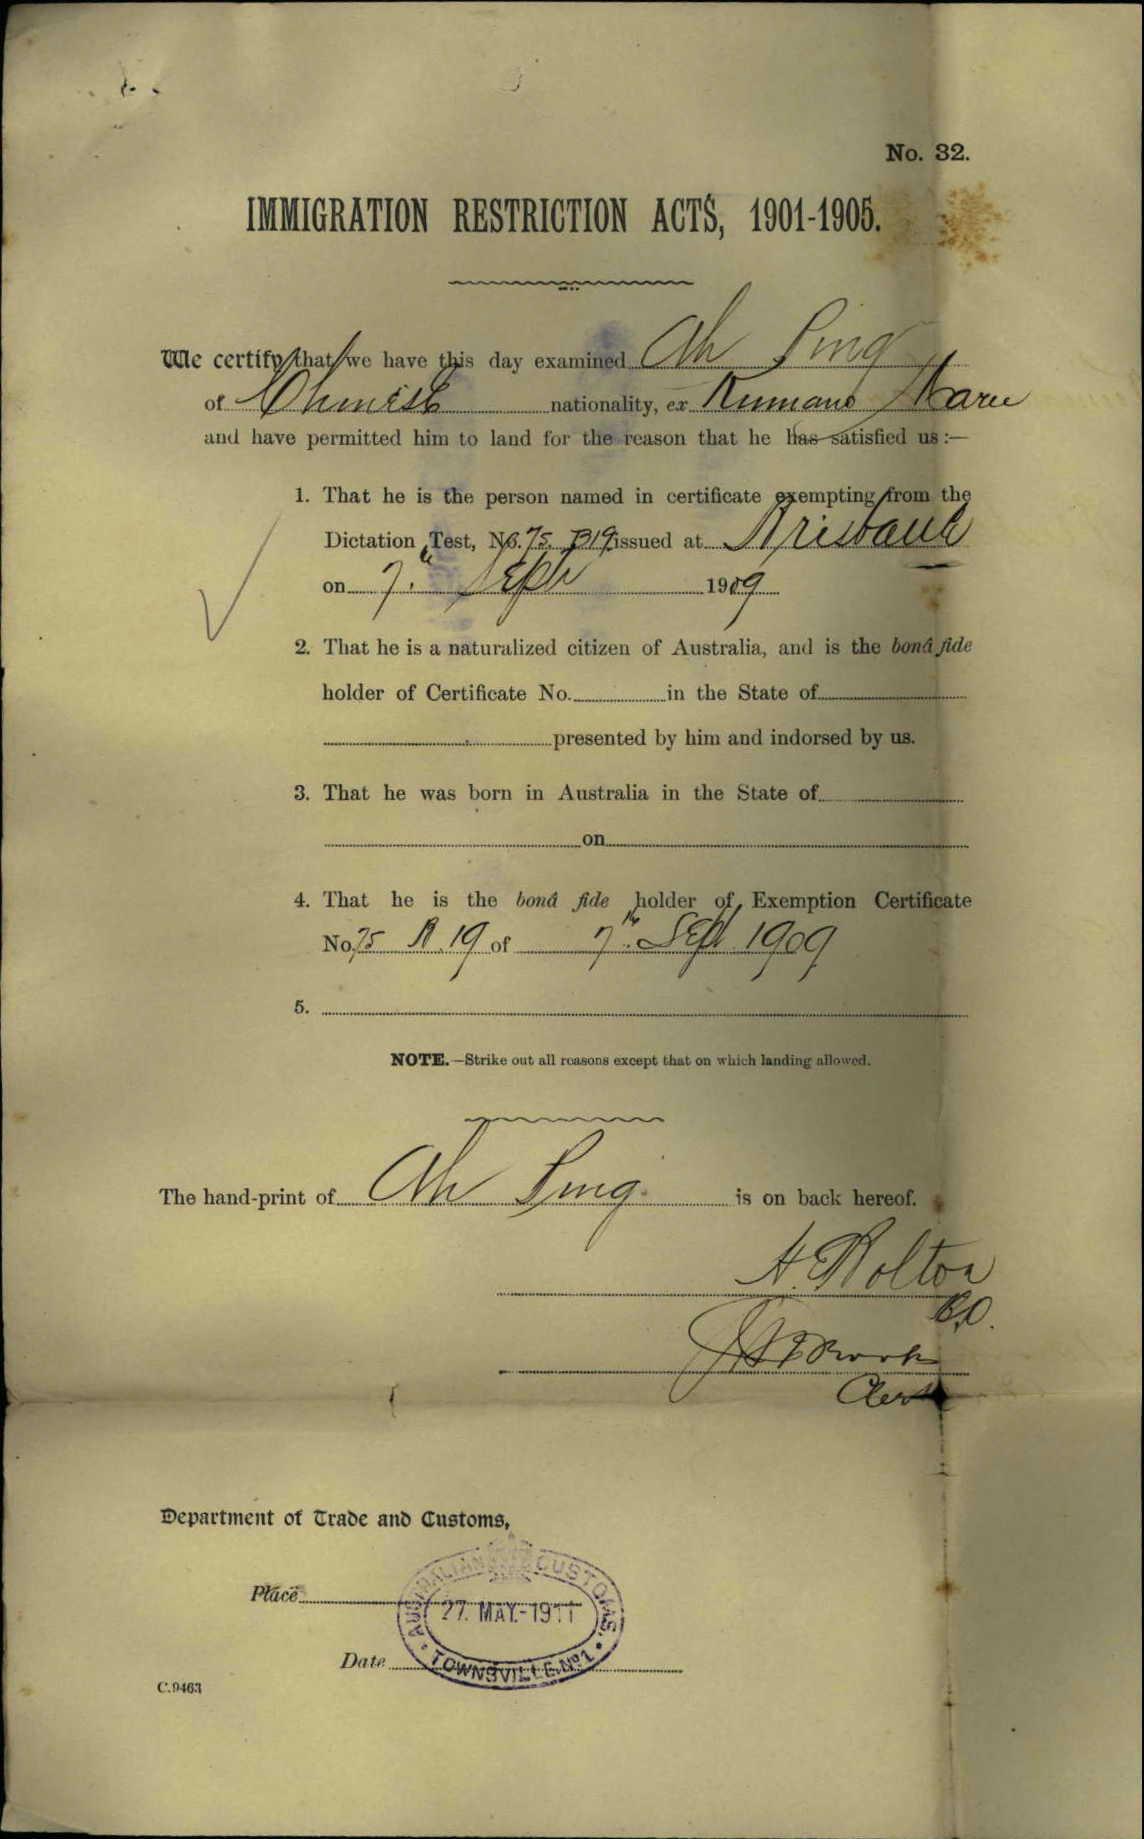 No. 32.
IMMIGRATION RESTRICTION ACTS, 1901-1905.
We certify that we have this day examined Ah Ping
of Chinese nationality, ex Kumano Maru
and have permitted him to land for the reason that he has satisfied us :—
1. That he is the person named in certificate exempting from the
Dictation Test, No. 75. B19 issued at Brisbane
on 7th Sept 1909
2. That he is a naturalized citizen of Australia, and is the bonâ fide
holder of Certificate No. in the State of
presented by him and indorsed by us.
3. That he was born in Australia in the State of
on
4. That he is the bonâ fide holder of Exemption Certificate
No. 75 B.19 of 7th Sept 1909
5.
NOTE.—Strike out all reasons except that on which landing allowed.
The hand-print of Ah Ping is on back hereof.
H. Bolton
B.O.
Clerk
Department of Trade and Customs,
Place
AUSTRALIAN CUSTOMS.
27. MAY.-1911
TOWNSVILLE. No. 1
Date
C.9463